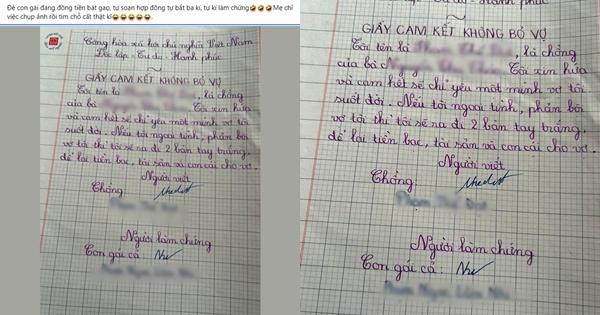 Đẻ con gái đáng đồng tiền bát gạo, tự soạn hợp đồng tự bắt ba kí, tự kí làm chứng🤣🤣🤣 Mẹ chỉ
việc chụp ảnh rồi tìm chỗ cất thật kĩ😂😂😂😂😂.
Cộng hòa xã hội chủ nghĩa Việt Nam
Độc lập - Tự do - Hạnh phúc
GIẤY CAM KẾT KHÔNG BỎ VỢ
Tôi tên là , là chồng
của bà Tôi xin hứa
và cam kết sẽ chỉ yêu một mình vợ tôi
suốt đời. Nếu tôi ngoại tình, phản bội
vợ tôi thì tôi sẽ ra đi 2 bàn tay trắng,
để lại tiền bạc, tài sản và con cái cho vợ.
Người viết
Chồng
Người làm chứng
Con gái cả : Như
GIẤY CAM KẾT KHÔNG BỎ VỢ
Tôi tên là , là chồng
của bà Tôi xin hứa
và cam kết sẽ chỉ yêu một mình vợ tôi
suốt đời. Nếu tôi ngoại tình, phản bội
vợ tôi thì tôi sẽ ra đi 2 bàn tay trắng,
để lại tiền bạc, tài sản và con cái cho vợ.
Người viết
Chồng
Người làm chứng
Con gái cả : Như